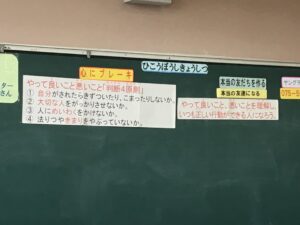 ひこうぼうしきょうしつ
心にブレーキ
やって良いこと悪いこと「判断4原則」
① 自分がされたらきずついたり、こまったりしないか。
② 大切な人をがっかりさせないか。
③ 人にめいわくをかけないか。
④ 法りつやきまりをやぶっていないか。
本当の友だちを作る
本当の友達になる
やって良いこと、悪いことを理解し、
いつも正しい行動ができる人になろう。
ヤング
075-5
ター
さん